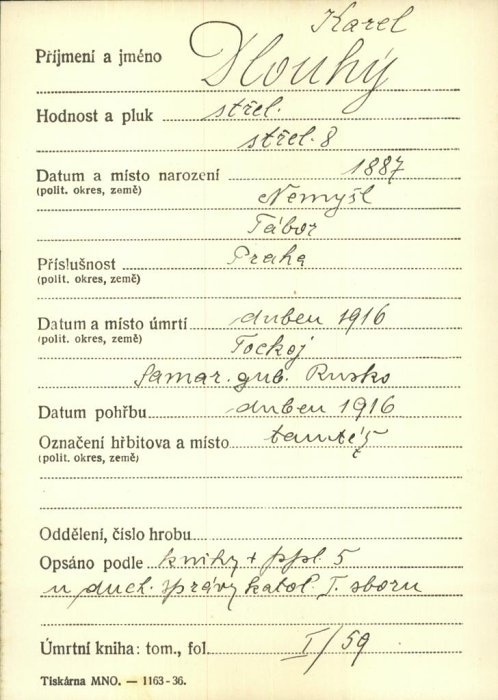 Karel
Příjmení a jméno Dlouhý
Hodnost a pluk střel.
střel. 8
Datum a místo narození 1887
(polit. okres, země) Nemyšl
Tábor
Příslušnost Praha
(polit. okres, země)
Datum a místo úmrtí duben 1916
(polit. okres, země) Tockoj
Samar. gub. Rusko
Datum pohřbu duben 1916
Označení hřbitova a místo tamtéž
(polit. okres, země)
Oddělení, číslo hrobu
Opsáno podle knihy + ppl. 5
u duch. správy katol. I. sboru
Úmrtní kniha: tom., fol. I/59
Tiskárna MNO. — 1163-36.